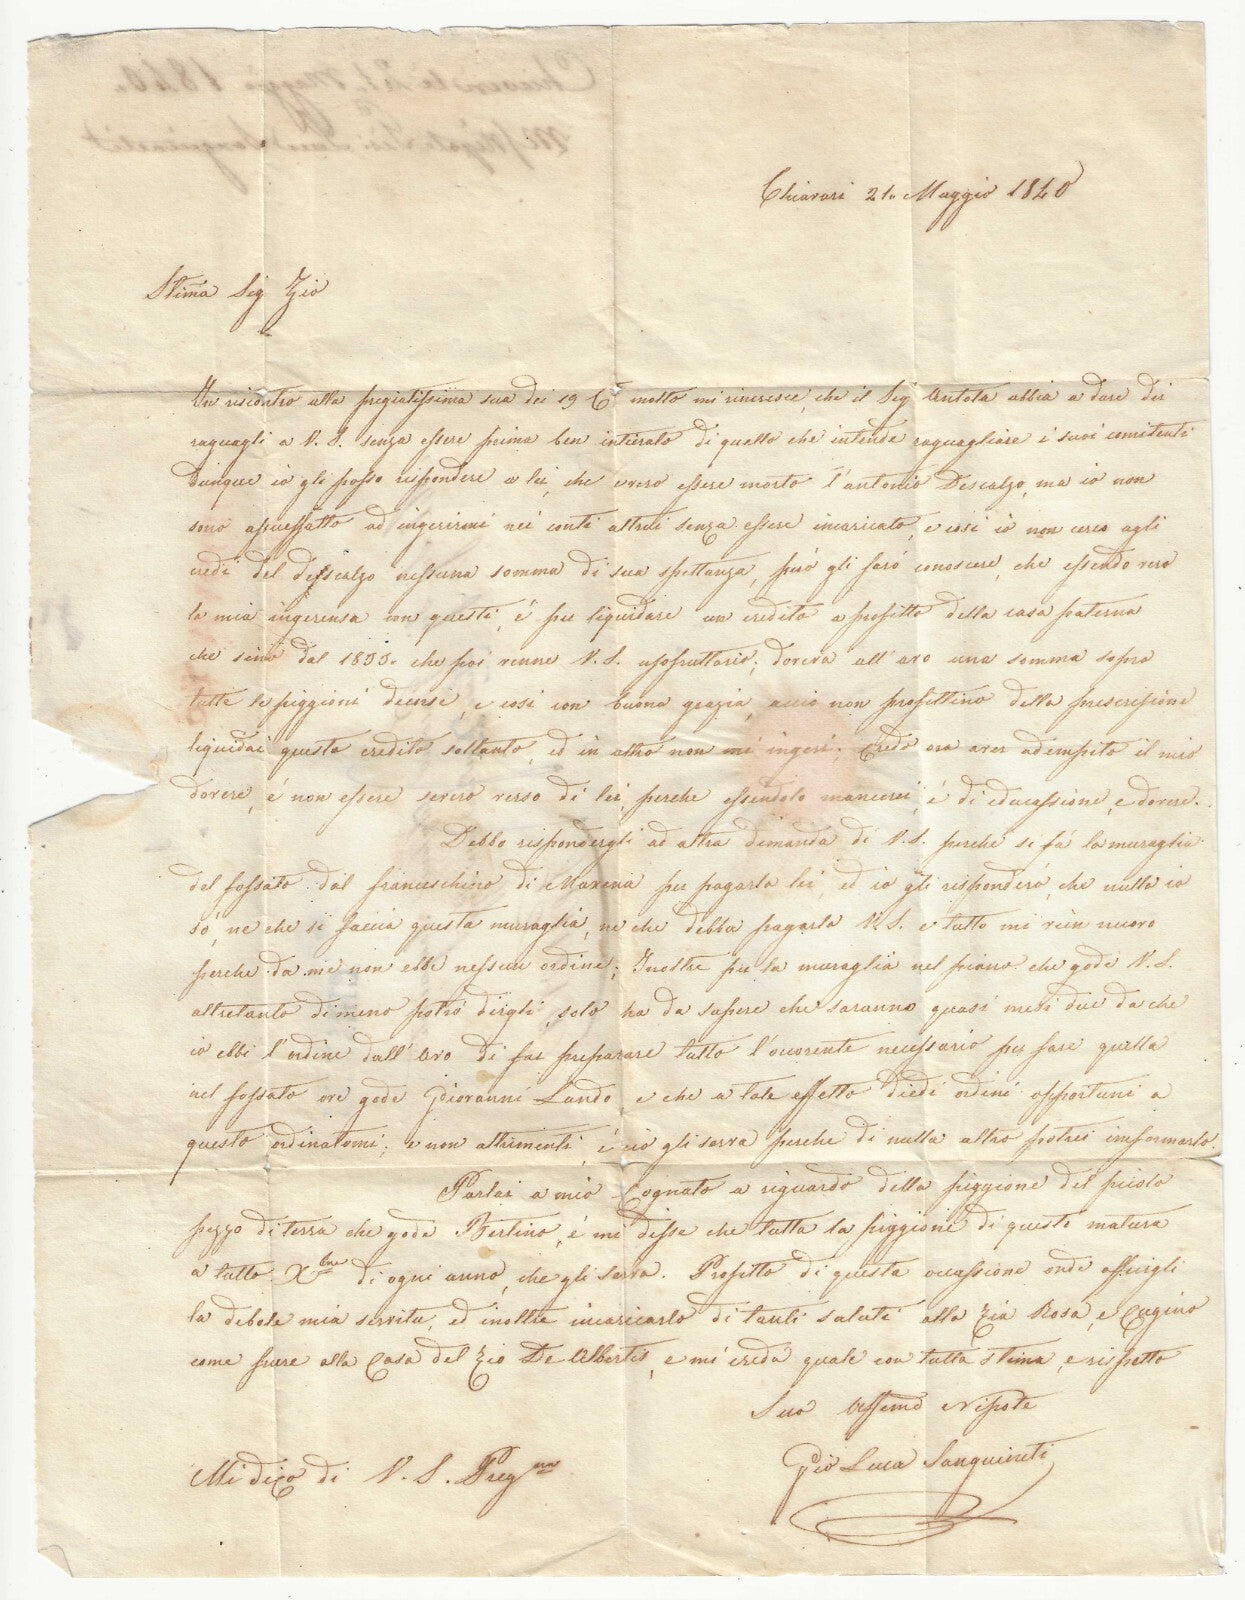 Chiavari 21. Maggio 1840
Stima Sig Zio
In riscontro alla pregiatissima sua dei 19 Ce molto mi rincresce, che il Sig Antola abbia a dare dei
raguagli a V. S. senza essere prima ben intieralo di quello che intende raguagliare i suoi comitenti
dunque io gli posso rispondere a lei, che è vero essere morto l'antonio Descalzo, ma io non
sono assuefatto ad ingerirmi nei conti altrui senza essere incaricato, e cosi io non cerco agli
eredi del Descalzo nessuna somma di sua spettanza, però gli farò conoscere, che essendo vero
la mia ingerensa con questi, è per liquidare un credito a profitto della casa paterna
che sino dal 1835. che poi venne V. S. usofruttario; doveva all'avo una somma sopra
tutte le piggioni decorse, e cosi con buona grazia, acciò non profittino della prescresione
liquidai questo credito soltanto, ed in altro non mi ingeri; Credo ora aver adempito il mio
dovere, é non essere severo verso di lei, perche essendolo mancerei, é di educassione, e dovere.
Debbo rispondergli ad altra dimanda di V. S. perché si fá la muraglia
del fossato dal franceschino di Maxena per pagarla lei, ed io gli risponderó, che nulla io
só, ne che si faccia questa muraglia, ne che debba pagarla V. S. e tutto mi rein nuovo
perche da me non ebbe nessun ordine; Inoltre per la muraglia nel piano che gode V. S.
altretanto di meno potró dirgli, solo ha da sapere che saranno quasi mesi due da che
io ebbi l'ordine dall'Avo di far preparare tutto l'ocorente necessario per fare quella
nel fossato ove gode Giovanni Lando e che a tale effetto diedi ordini opportuni a
questo ordinatomi; e non altrimenti, é ció gli serva perche di nulla altro potrei imformarlo.
Parlai a mió Cognato a riguardo della piggione del picolo
pezzo di terra che gode Bertino, é mi disse che tutta la piggione di queste matura
a tutto Xbre di ogni anno, che gli serva. Profitto di questa ocassione onde offrirgli
la debole mia servitu, ed inoltre incaricarlo di tanti saluti alla Zia Rosa, e Cugino
come pure alla Casa del Zio De Albertis, e mi creda quale con tutta stima, e rispetto
Suo Affemo Nipote
Mi dico di V. S. Pregma
Gio Luca Sanguineti